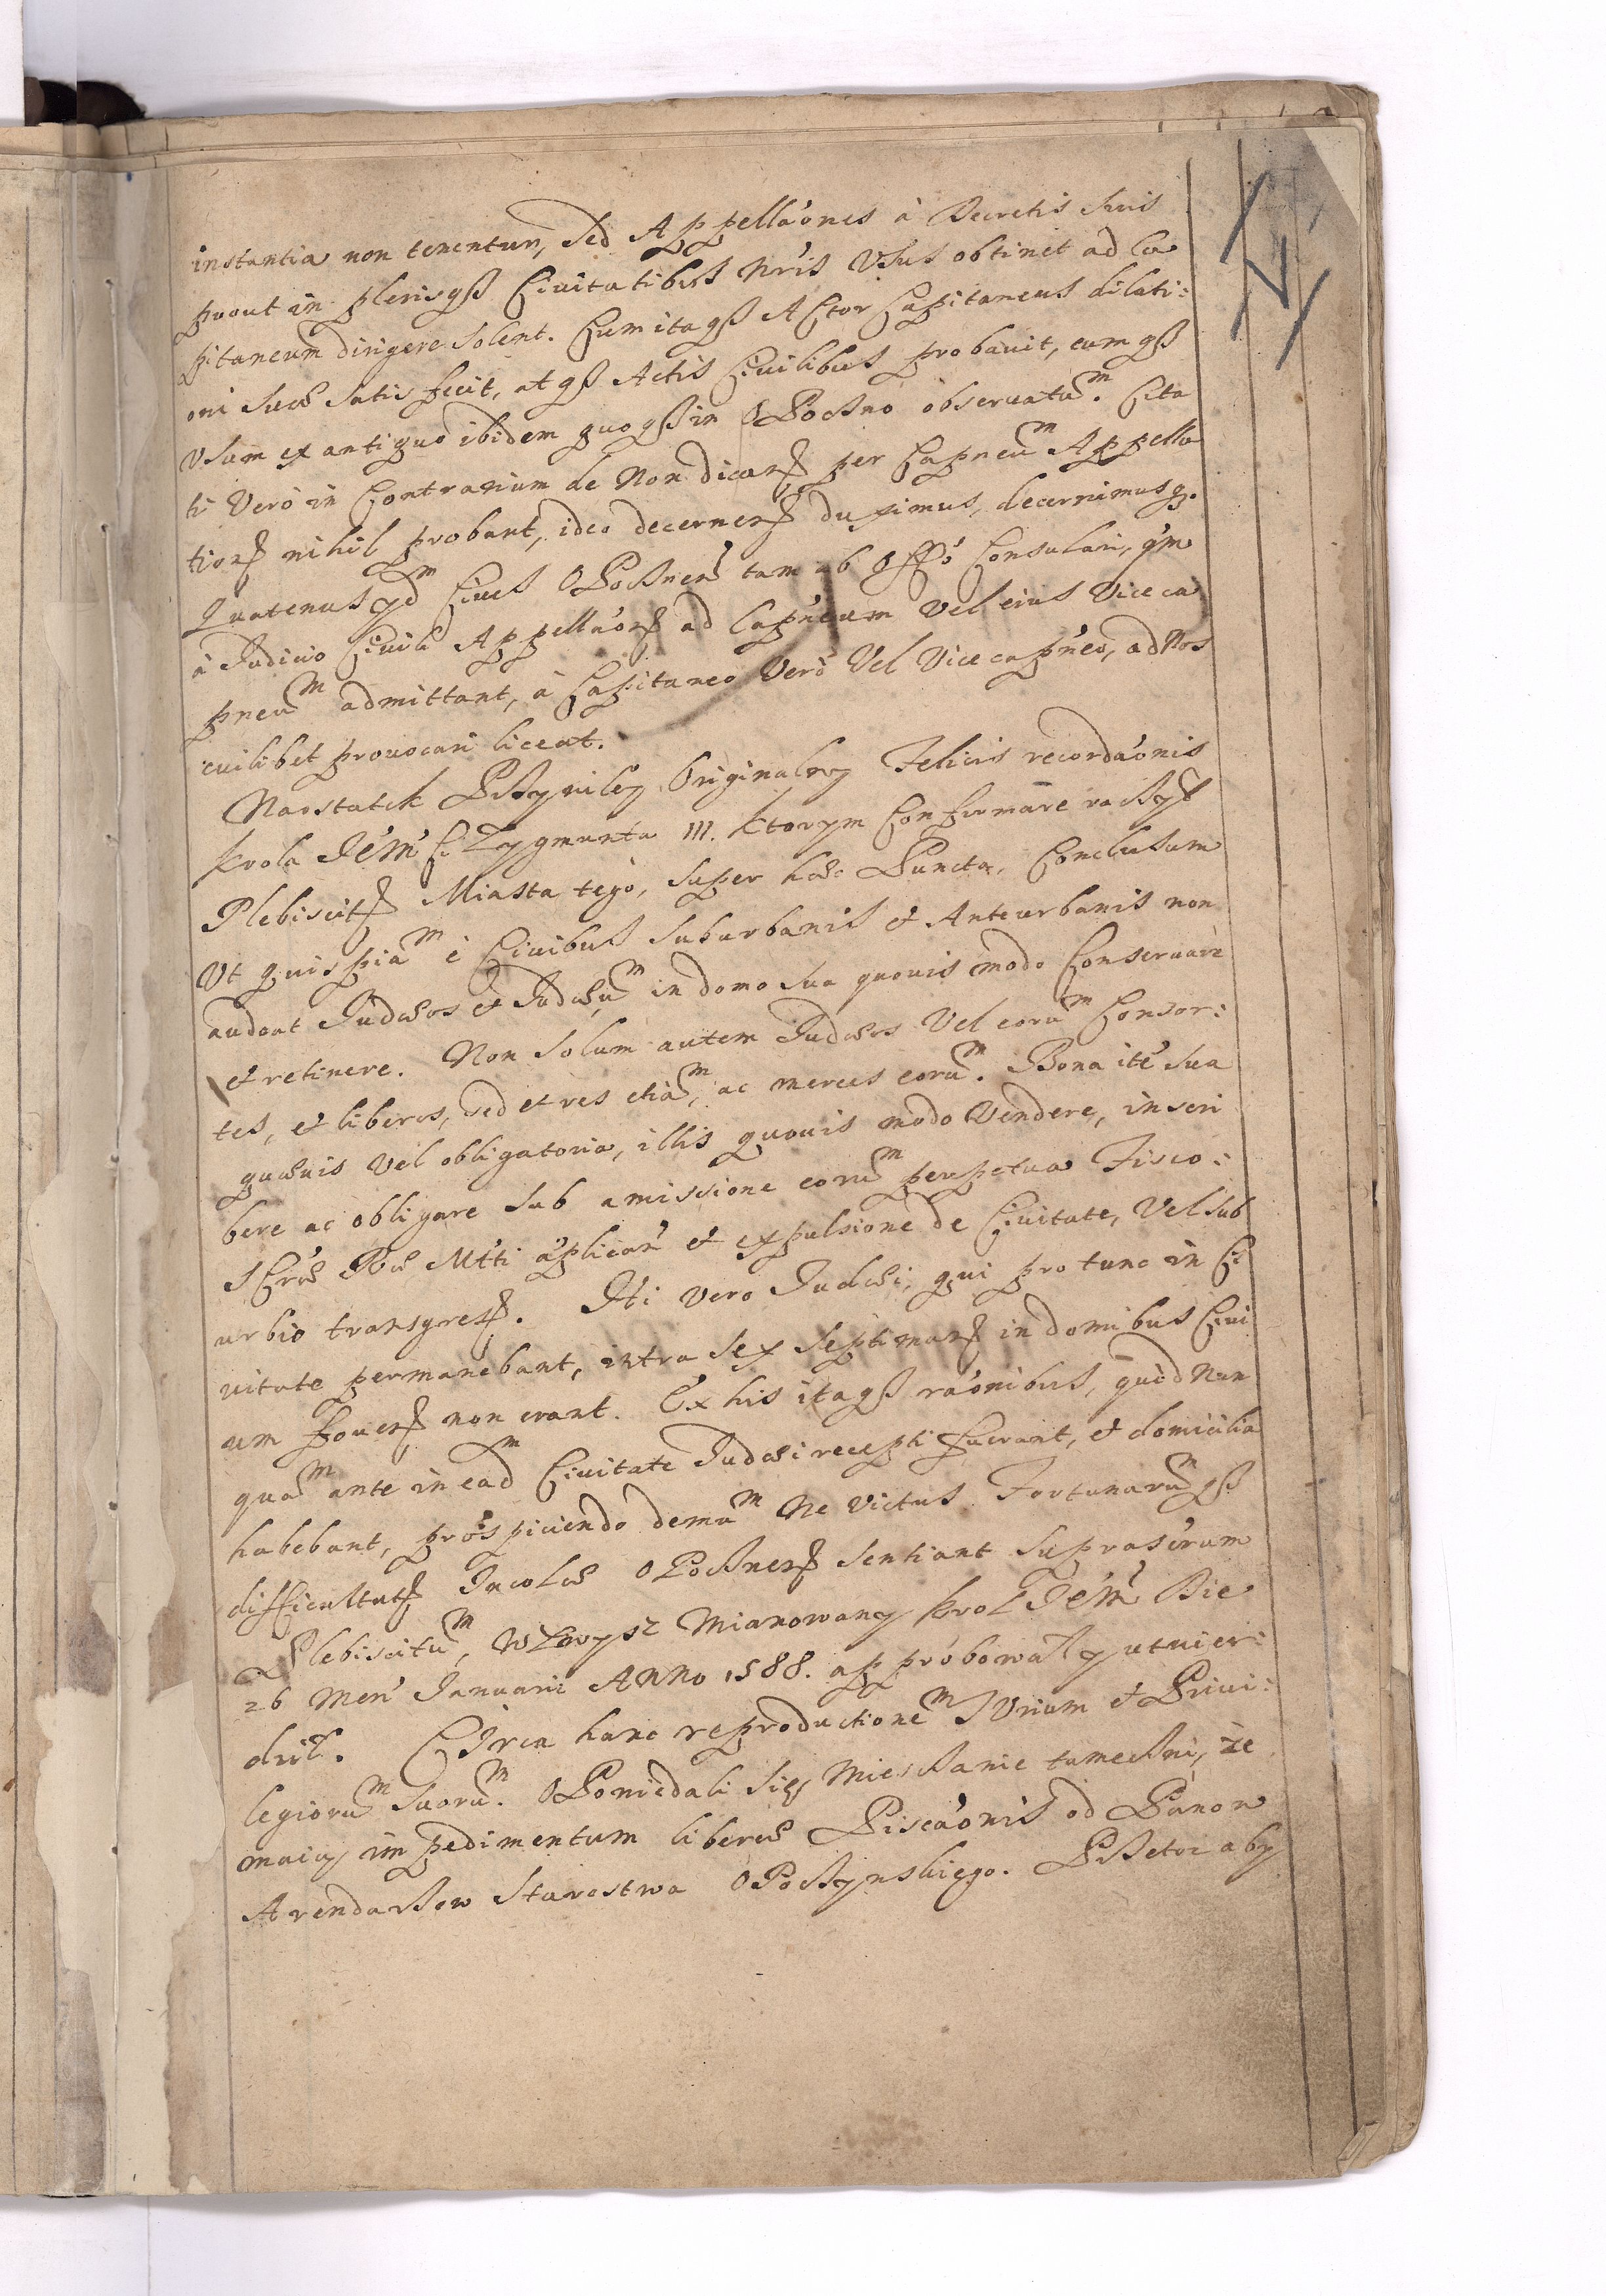 instantia non tenentur, sed Appella'ones à Decretis suis
prout in plerisqß Ciuitatibus Nr'is Usus obtinet ad Ca
pitaneum dirigere solent. Cum itaqß Actor Capitaneus dilati:
oni suæ satis fecit, atqß Actis Ciuilibus probauit, eumqß
Usum ex antiquo ibidem quoqß in OPoczno obseruatu͠m. Cita
ti Verò in Contrarium de Non dicanß per Capneu͠m Appella
tionß nihil probant, ideo decernenß duximus, decernimusq.
Quatenus ijd͠m Ciues OPocznen' tam ab Offó Consulari, q'm
à Judicio Ciuili Appella'onß ad Cap'neum Vel eius Viceca
pneu͠m admittant, à Capitaneo Verò Vel Vicecap'neo, ad Nos
cuilibet prouocari liceat.
Naostatek PRzywiley Originalny Felicis recorda'onis
Krola Je'm'ci Zygmunta III. Ktorym Confirmare raczył
Plebiscitß Miasta tego, super hæc Puncta, Conclusum
Ut quispia͠m è Ciuibus Suburbanis et Anteurbanis non
audeat Judæos et Judæu͠m in domo sua quouis modo Conseruare
et retinere. Non solum autem Judæos Vel coru͠m Consor:
tes, et liberos, sed et res etia͠m, ac merces eoru͠m. Bona ite' sua
quæuis Vel obligatoria, illis quouis modo Vendere, inscri
bere ac obligare sub amissione eoru͠m perpetua Fisco:
SCræ Ræ Mt'ti aplican' et expulsione de Ciuitate, Vel sub
urbio transgresß. Iti vero Judæi, qui pro tunc in Ci
uitate permanebant, intra Sex Septimanß in domibus Ciui
um fouenß non erant. Ex his itaqß ra'onibus, quòd Nun
qua͠m ante in ead͠m Ciuitate Judæi recepti fuerant, et domicilia
habebant, prospiciendo demu͠m Ne Victus Fortunaru͠mqß
difficultatß Incolæ OPocznenß sentiant supras'crum
Plebiscitu͠m, WZwysz Mianowany Krol Je'm' Die
26 Men' Januarii ANNo 1588. approbował y utwier:
dził. CIrca hanc reproductione͠m IUrium et Priui:
legioru͠m Suoru͠m. OPowiedali się Mieszczanie tameczni, że
maią impedimentum liberæ Pisca'onis od Panow
Arendarzow Starostwa OPoczynskiego. PRzetoz aby